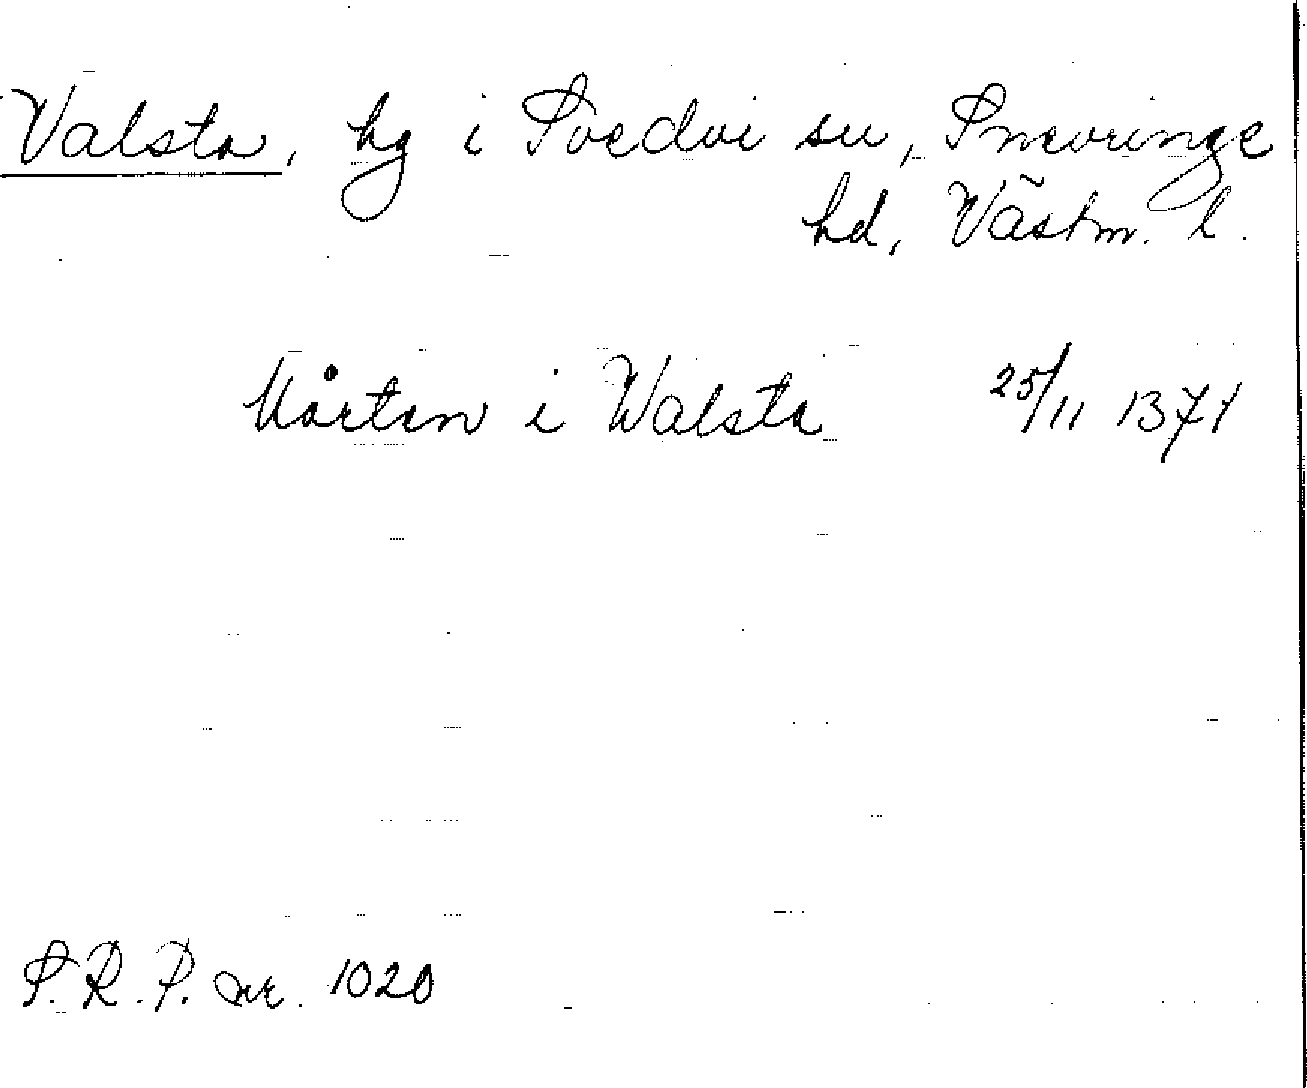 Valsta, hg i Svedvi sn, Snevringe
hd, Västm. l.
Mårten i Walsta 25/11 1371
S.R.P. nr. 1020